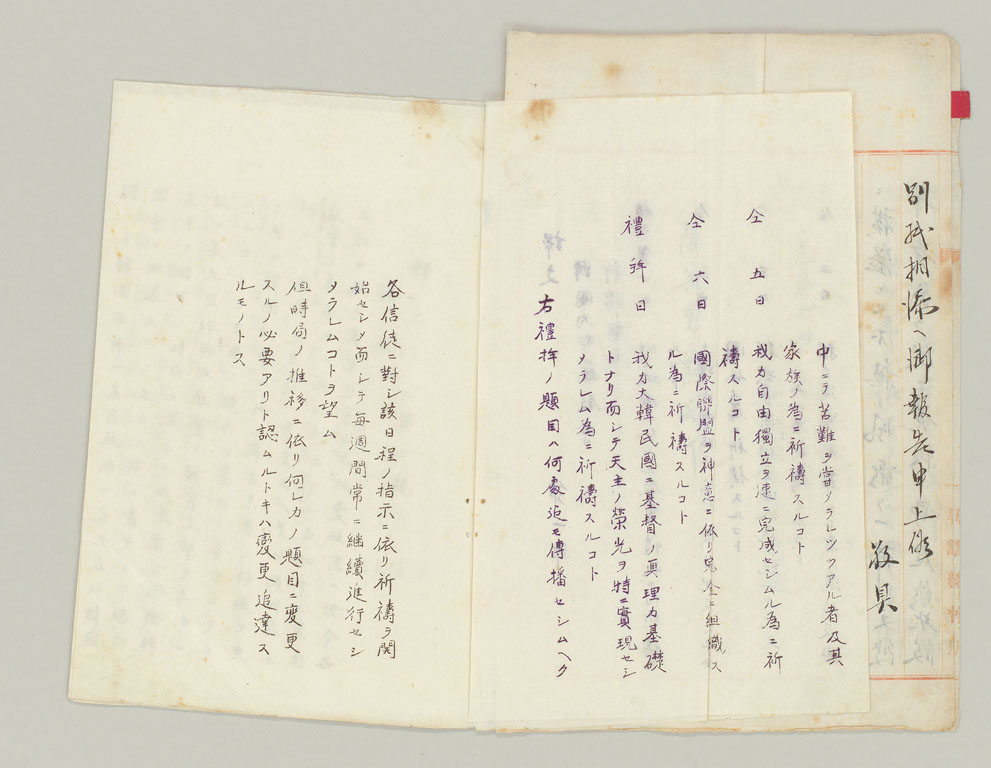 別紙相添ヘ御報告申上候
敬具
中ニテ苦難ヲ嘗メラレツツアル者及其
家族ノ為ニ祈禱スルコト
仝 五日 我カ自由獨立ヲ速ニ完成セシムル為ニ祈
禱スルコト
仝 六日 國際聯盟ヲ神意ニ依リ完全ニ組織ス
ル為ニ祈禱スルコト
禮拜日 我カ大韓民國ニ基督ノ眞理カ基礎
トナリ而シテ天主ノ榮光ヲ特ニ實現セシ
メラレム為ニ祈禱スルコト
右禮拜ノ題目ハ何處迄モ傳播セシムヘク
各信徒ニ對シ該日程ノ指示ニ依リ祈禱ヲ開
始セシメ而シテ每週間常ニ継續進行セシ
メラレムコトヲ望ム
但時局ノ推移ニ依リ何レカノ題目ニ變更
スルノ必要アリト認ムルトキハ變更追達ス
ルモノトス